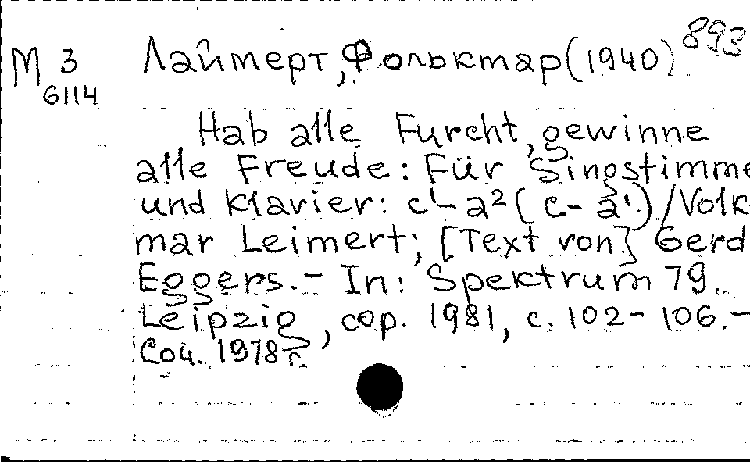 893
М 3 Лаймерт, Фолькмар (1940)
6114
Hab alle Furcht, gewinne
alle Freude: Für Singstimme
und Klavier: c¹- a² (c - a¹) / Volk
mar Leimert; [Text von] Gerd
Eggers. - In: Spektrum 79.
Leipzig, cop. 1981, с. 102 - 106. -
Соч. 1978 г.